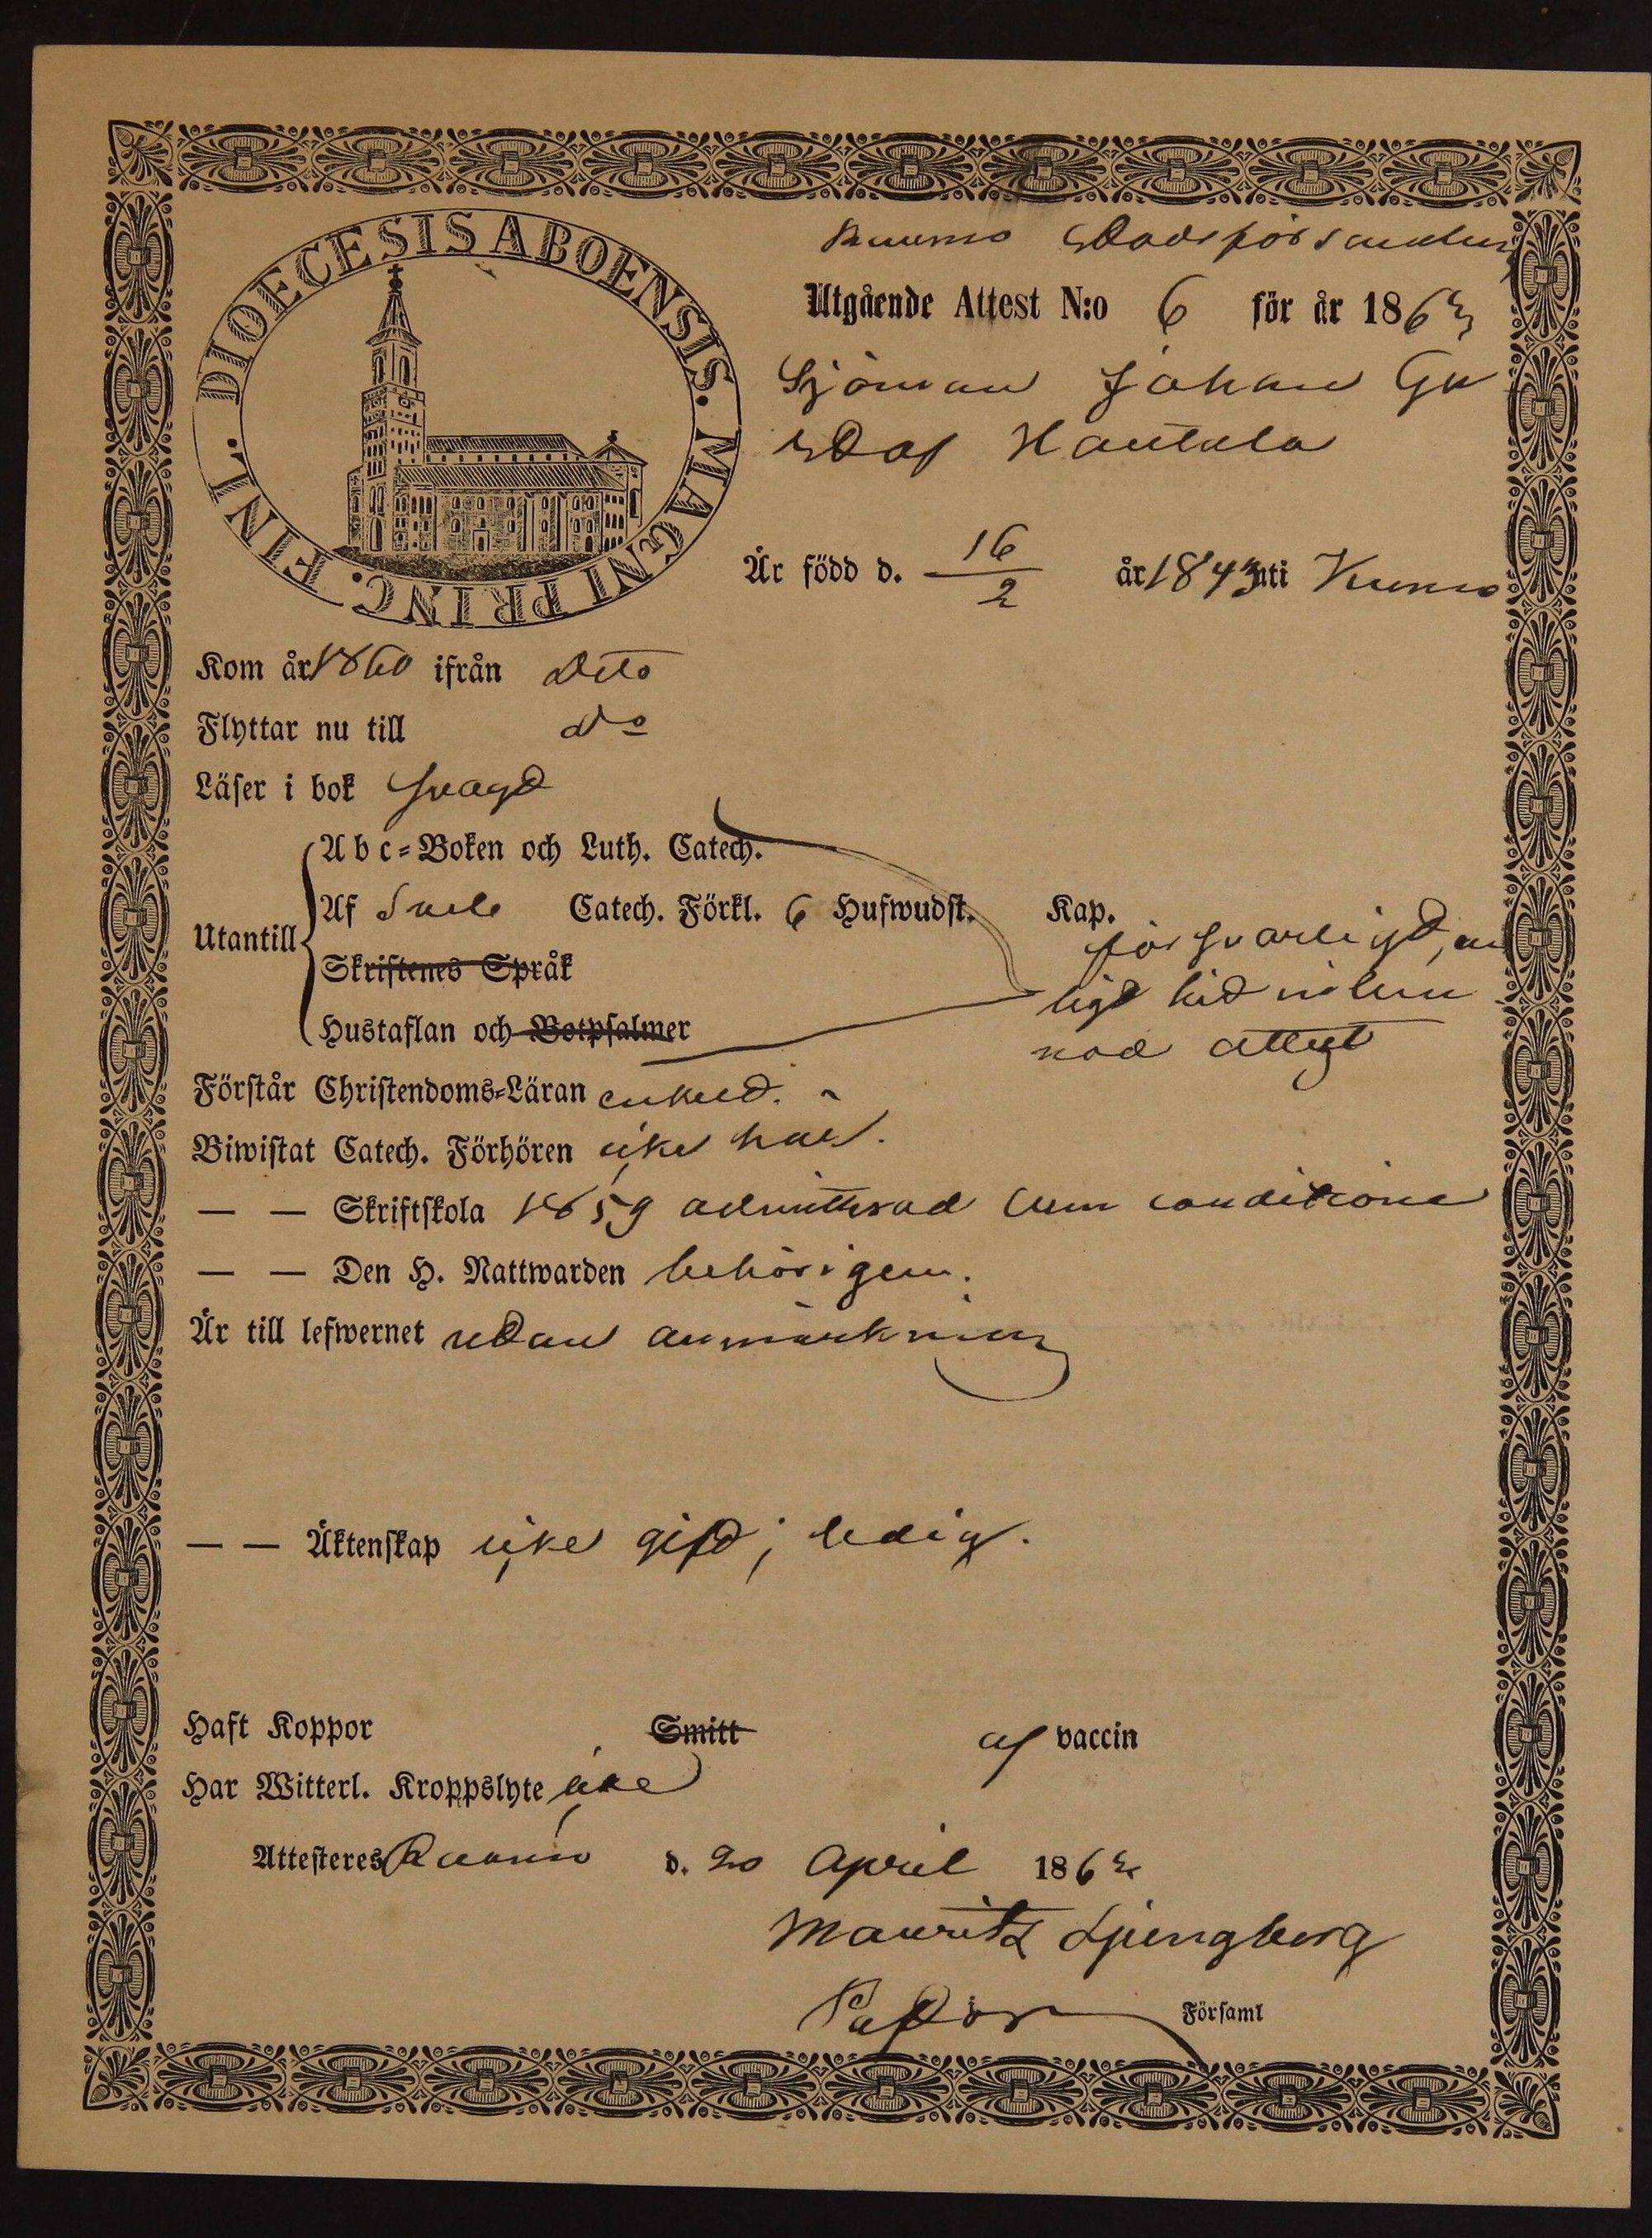 DIOECESIS ABOENSIS. MAGNI PRINC. FINL.
Raumo Stadsförsamling
Utgående Attest N:o 6 för år 1863
Sjöman Johan Gu
staf Hautala
Är född d. 16/2 år 1843 uti Kumo
Kom år 1860 ifrån Dito
Flyttar nu till do
Läser i bok svagt
Utantill
Abc-Boken och Luth. Catech.
Af Svebe Catech. Förkl. 6 Hufwudst. Kap.
försvarligt, en
Skriftenes Språk
ligt hit
Hustaflan och Botpsalmer
nad attest
Förstår Christendoms-Läran enkelt.
Biwistat Catech. Förhören icke har.
— — Skriftskola 1859 admitterad cum conditione
— — Den H. Nattwarden behörigen.
Är till lefwernet utan anmärkning
— — Äktenskap icke gift; ledig.
Haft Koppor Smitt af vaccin
Har Witterl. Kroppslyte icke
Attesteres Raumo d. 20 April 1863
Mauritz Ljungberg
Pastor Församl